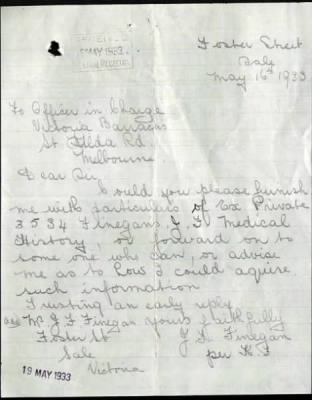 MAY 1933
Foster Street
Sale
May 16th 1933
To Officer in Charge
Victoria Barracks
St Kilda Rd
Melbourne
Dear Sir,
Could you please furnish
me with particulars of Ex Private
3534 Finegans J. F. Medical
History, or forward on to
some one who can, or advise
me as to how I could aquire
such information
Trusting an early reply
Mr J. F. Finegan yours faithfully
Foster St J. F. Finegan
Sale per
Victoria
19 MAY 1933